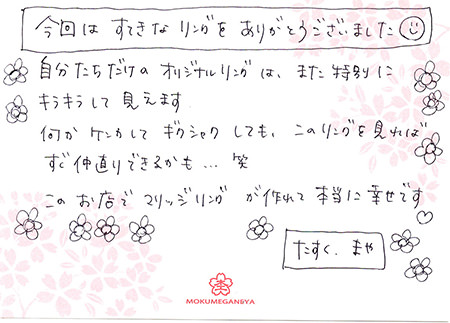 今回は すてきな リングを ありがとうございました
自分たちだけの オリジナルリングは、また 特別に
キラキラして 見えます
何か ケンカして ギクシャク しても、このリングを見れば
すぐ仲直りできるかも… 笑
この お店で マリッジリング が作れて 本当に 幸せです
たすく、まや
MOKUMEGANEYA